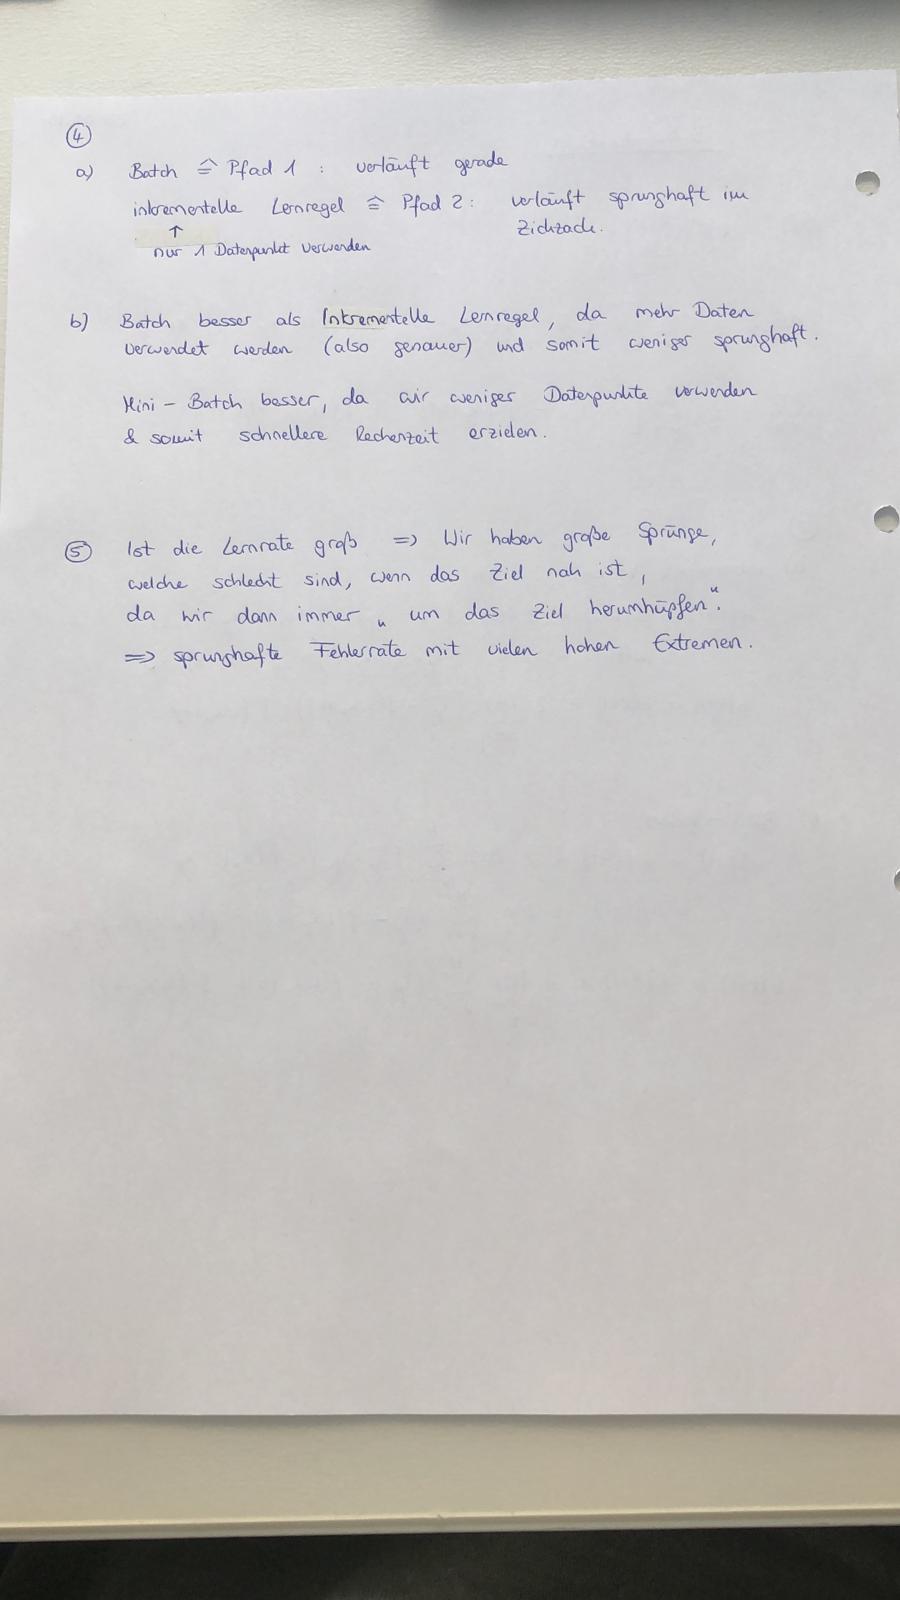 ④
a) Batch ≙ Pfad 1 : verläuft gerade
inkrementelle Lernregel ≙ Pfad 2 : verläuft sprunghaft im
Zickzack.
↑
nur 1 Datenpunkt verwenden
b) Batch besser als Inkrementelle Lernregel, da mehr Daten
verwendet werden (also genauer) und somit weniger sprunghaft.
Mini - Batch besser, da wir weniger Datenpunkte verwenden
& somit schnellere Rechenzeit erzielen.
⑤ Ist die Lernrate groß => Wir haben große Sprünge,
welche schlecht sind, wenn das Ziel nah ist,
da wir dann immer „um das Ziel herumhüpfen“.
=> sprunghafte Fehlerrate mit vielen hohen Extremen.